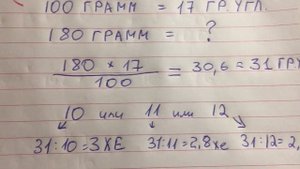 100 ГРАММ = 17 ГР. УГЛ.
180 ГРАММ = ?
180 * 17
100
= 30,6 = 31 ГРУ
10 или 11 или 12
31:10=3ХЕ 31:11=2,8хе 31:12=2,